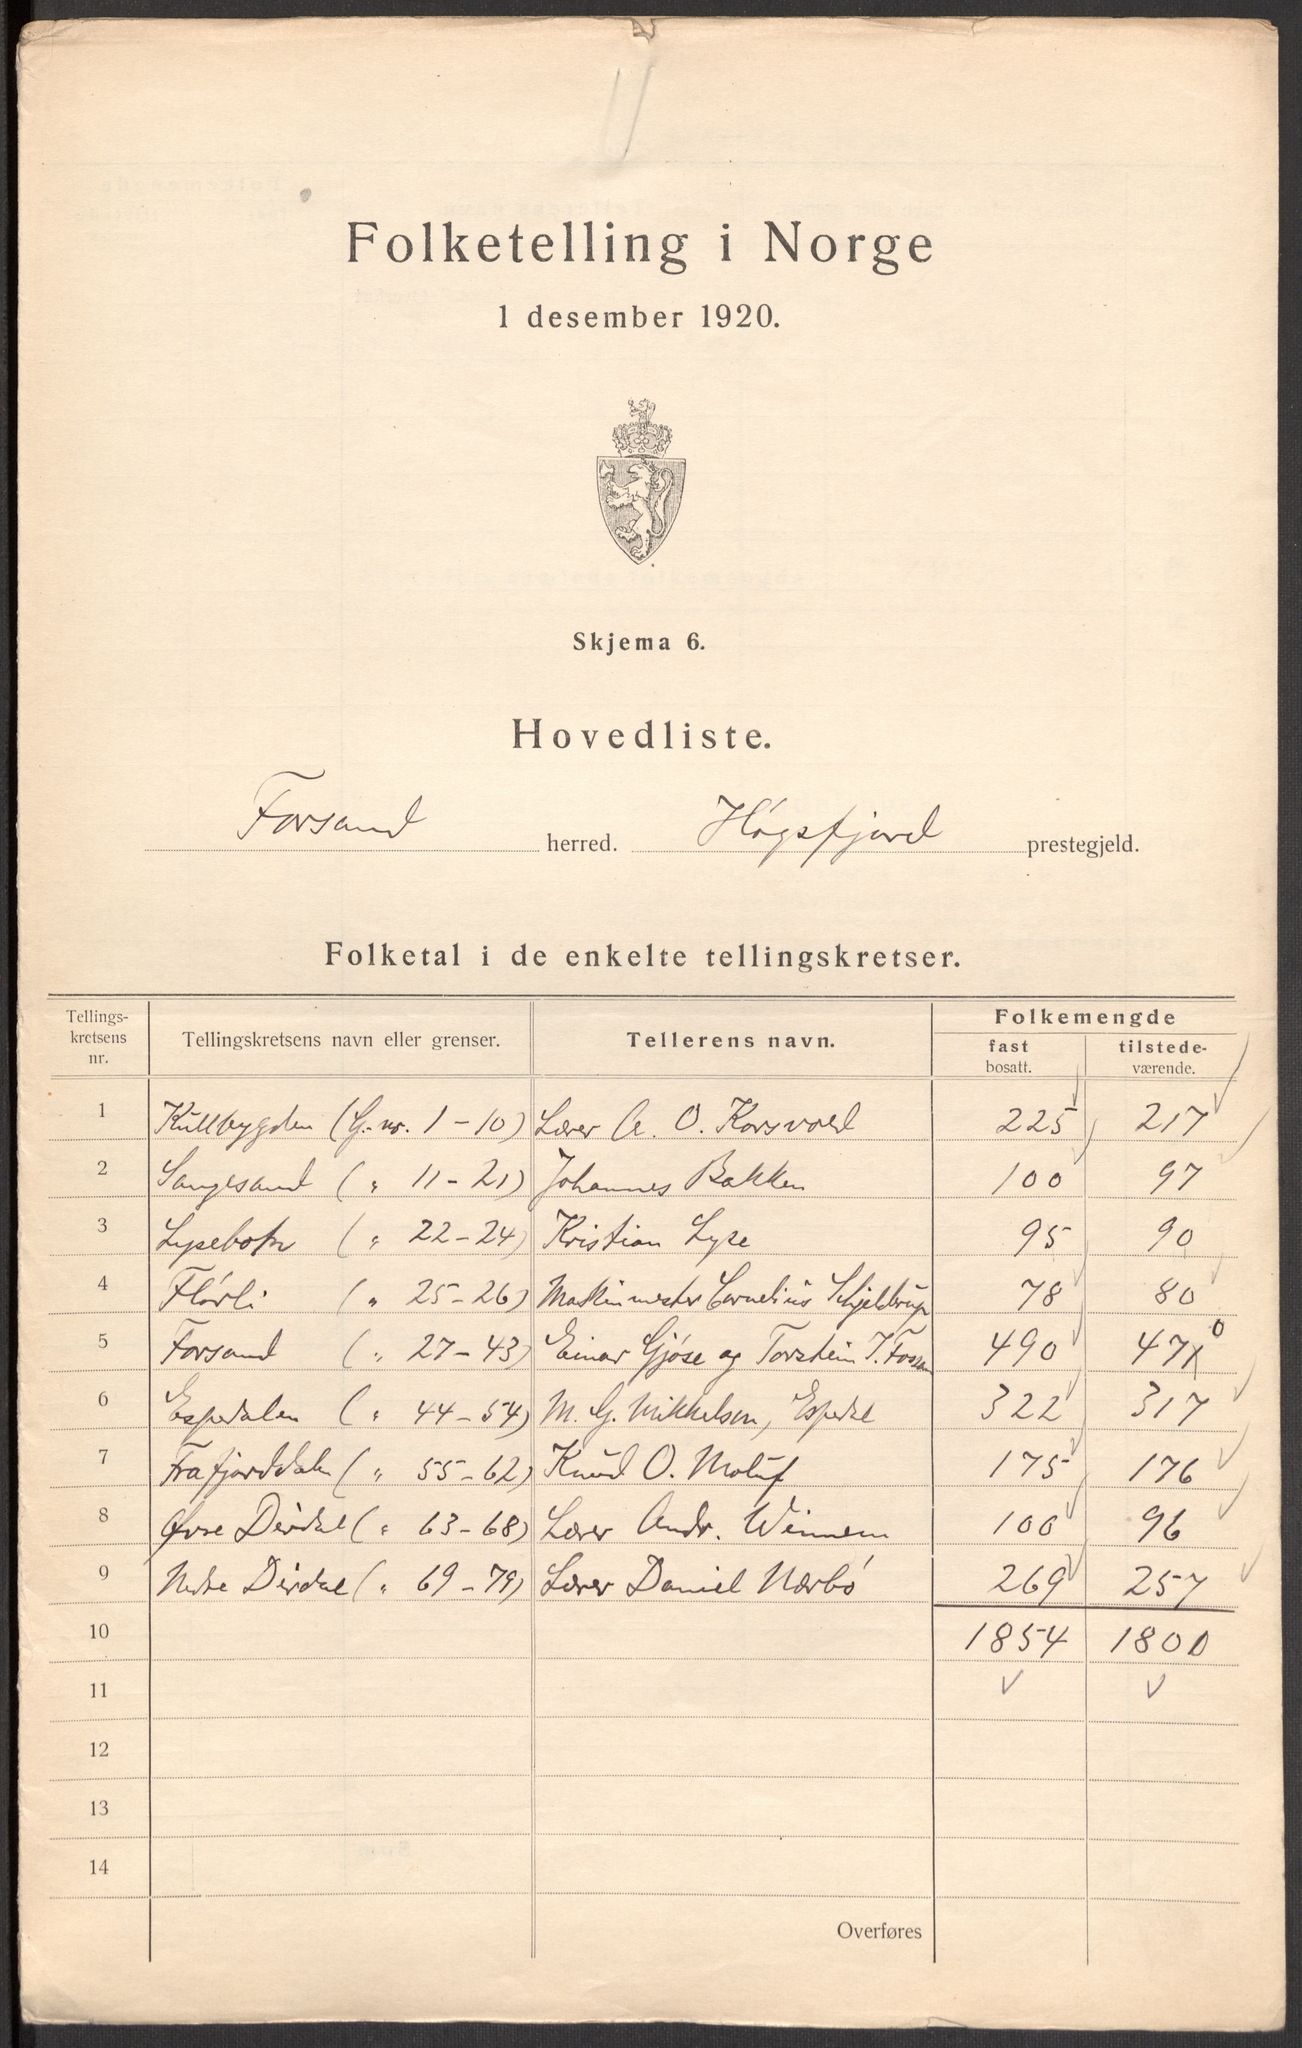 Folketelling i Norge
1 desember 1920.
Skjema 6.
Hovedliste.
Forsand herred. Høgsfjord prestegjeld.
Folketal i de enkelte tellingskretser.
Tellings-kretsens nr. Tellingskretsens navn eller grenser. Tellerens navn. Folkemengde
fast bosatt. tilstede-værende.
1 Kullbygden (G. nr. 1-10) Lærer A. O. Korsvold 225 217
2 Songesand (" 11-21) Johannes Bakken 100 97
3 Lysebotn (" 22-24) Kristian Lyse 95 90
4 Flørli (" 25-26) Maskinmester Cornelius Schjeldrup 78 80
5 Forsand (" 27-43) Einar Gjøse og Torstein T. Fossan 490 470
6 Espedalen (" 44-54) M. G. Mikkelsen, Espedal 322 317
7 Frafjorddalen (" 55-62) Knud O. Molauf 175 176
8 Øvre Dirdal (" 63-68) Lærer Andr. Winnem 100 96
9 Nedre Dirdal (" 69-79) Lærer Daniel Nærbø 269 257
10 1854 1800
11
12
13
14
Overføres